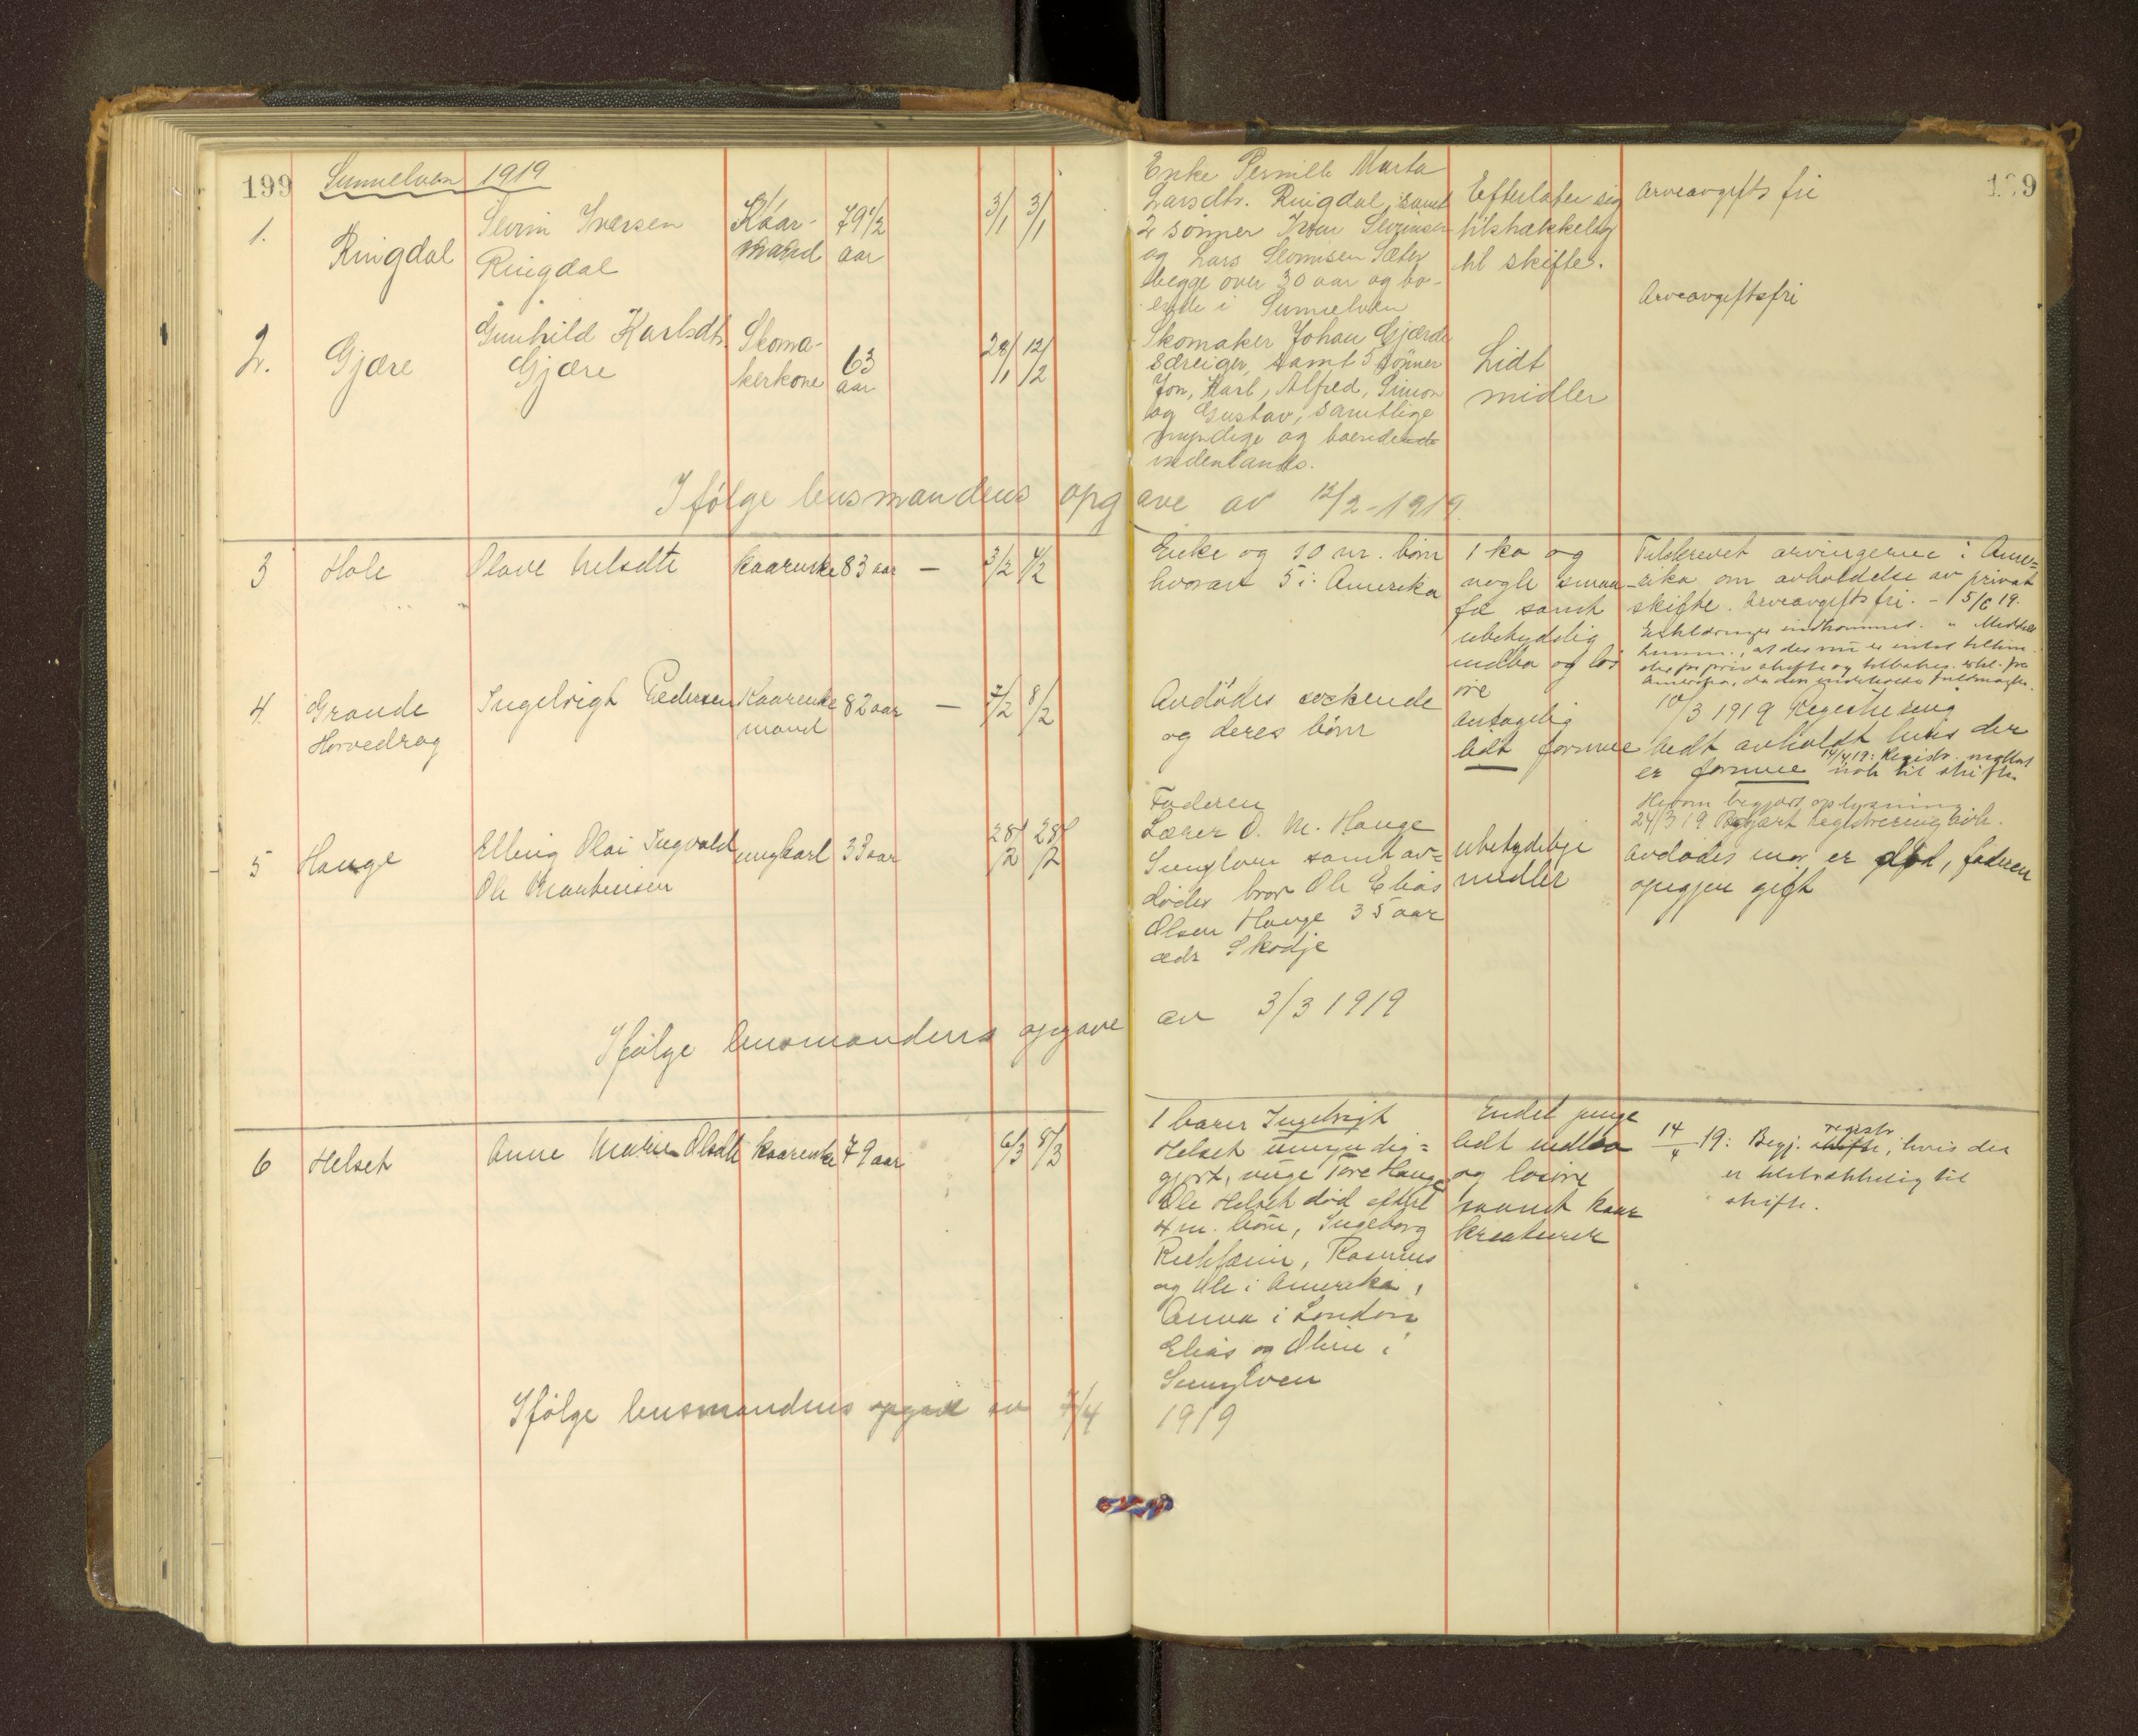 199 Sunnelven 1919
199
1. Ringdal
Sevrin Iversen
Ringdal
Kaar-
mand
79 1/2
aar
3/1 3/1
Enke Pernille Marta
Larsdtr. Ringdal, samt
2 sønner Iver Sevrinsen
og Lars Sevrinsen Sæter
begge over 30 aar og bo-
ende i Sunnelven
Efterlater sig
tilstrækkelig
til skifte.
Arveavgifts fri
2. Gjære
Gunhild Karlsdtr.
Gjære
Skoma-
kerkone
63
aar
28/1 12/2
Skomaker Johan Gjærde
særeiger, samt 5 sønner
Jon, Karl, Alfred, Simon
og Gustav, samtlige
myndige og boende
indenlands.
Lidt
midler
Arveavgiftsfri
Ifølge lensmandens opgave av 12/2-1919.
3 Hole
Olave Nelsdtr
Kaarenke 83 aar — 3/2 4/2
Enke og 10 m. børn
hvorav 5 i Amerika
1 ko og
nogle smaa-
fe samt
ubetydelig
indbo og løs
øre
Tilskrevet arvingerne i Ame=
rika om avholdelse av privat
skifte. Arveavgifts fri. - 15/6 19.
4. Grande
Horvedrag
Ingebrigt Pedersen
Kaarenke
mand
82 aar — 7/2 8/2
Avdødes søskende
og deres børn
antagelig
lidt formue
10/3 1919 Registrering
bedt avholdt hvis der
er formue nok til skifte.
14/4 19: Registr. mottat
5 Hauge
Elling Olai Ingvald
Ole Martinusen
ungkarl 33 aar
28/2 28/2
Faderen
Lærer O. M. Hauge
Sunylven samt av=
dødes bror Ole Elias
Olsen Hauge 35 aar
adr Skodje
ubetydelige
midler
Herom begjært oplysning
24/3 19 Begjært registrering avh.
Avdødes mor er død, faderen
opigjen gift
Ifølge lensmandens opgave av 3/3 1919
6 Helset
Anne Marie Olsdtr Kaarenke 79 aar 6/3 8/3
1 barn Ingebrigt
Helset umyndig=
gjort, verge Tore Hauge
Ole Helset død efterl
4 m. børn, Ingeborg
Rasmus
og Ole i Amerika,
Anna i London
Elias og Oline i
Sunylven
Endel penge
lidt indbo
og løsøre
samt kaar
kreaturer
14/4 19: Begj. skifte registr, hvis der
er tilstrækkelig til
skifte.
Ifølge lensmandens opgave av 7/4 1919